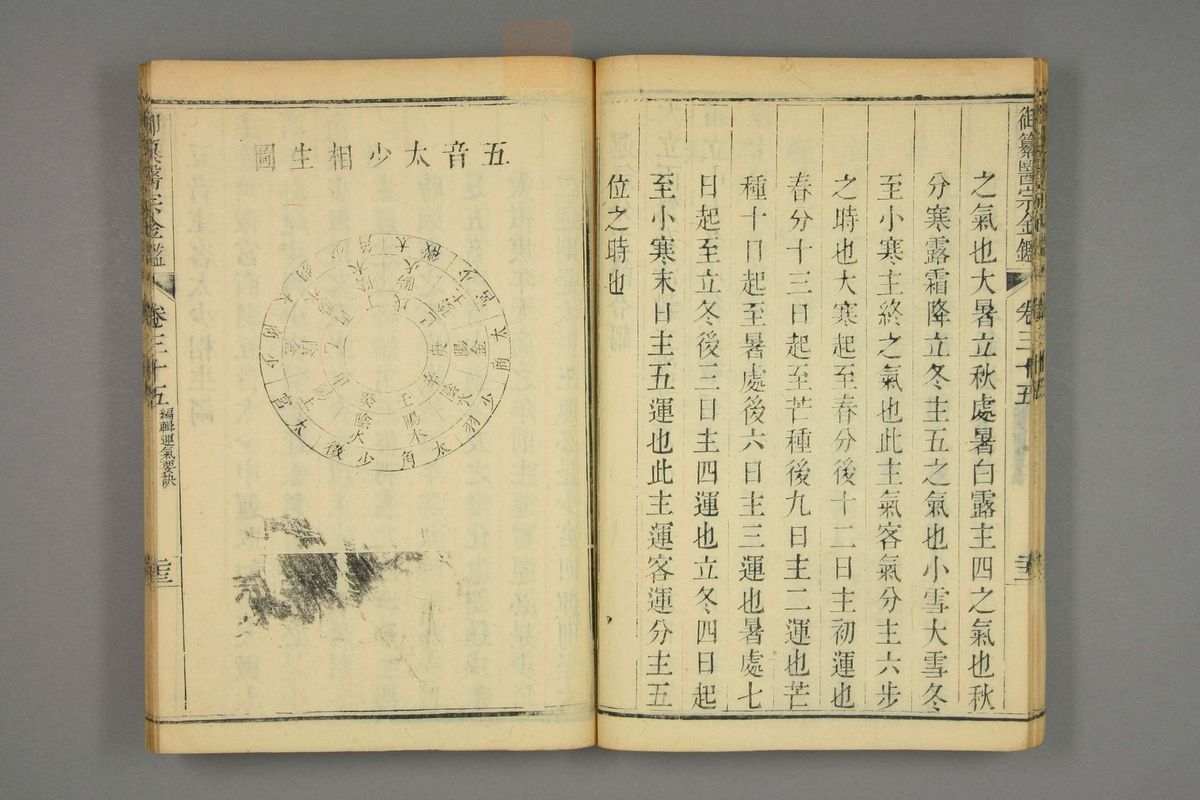 御纂醫宗金鑑
卷三十五
之氣也大暑立秋處暑白露主四之氣也秋
分寒露霜降立冬主五之氣也小雪大雪冬
至小寒主終之氣也此主氣客氣分主六步
之時也大寒起至春分後十二日主初運也
春分十三日起至芒種後九日主二運也芒
種十日起至暑處後六日主三運也暑處七
日起至立冬後三日主四運也立冬四日起
至小寒末日主五運也此主運客運分主五
位之時也
五音太少相生圖
太角
少徵
太宮
少商
太羽
少宮
太商
少羽
太角
少徵
庚
陽金
辛
陰水
壬
陽木
癸
陰火
御纂醫宗金鑑
卷三十五
編輯運氣要訣